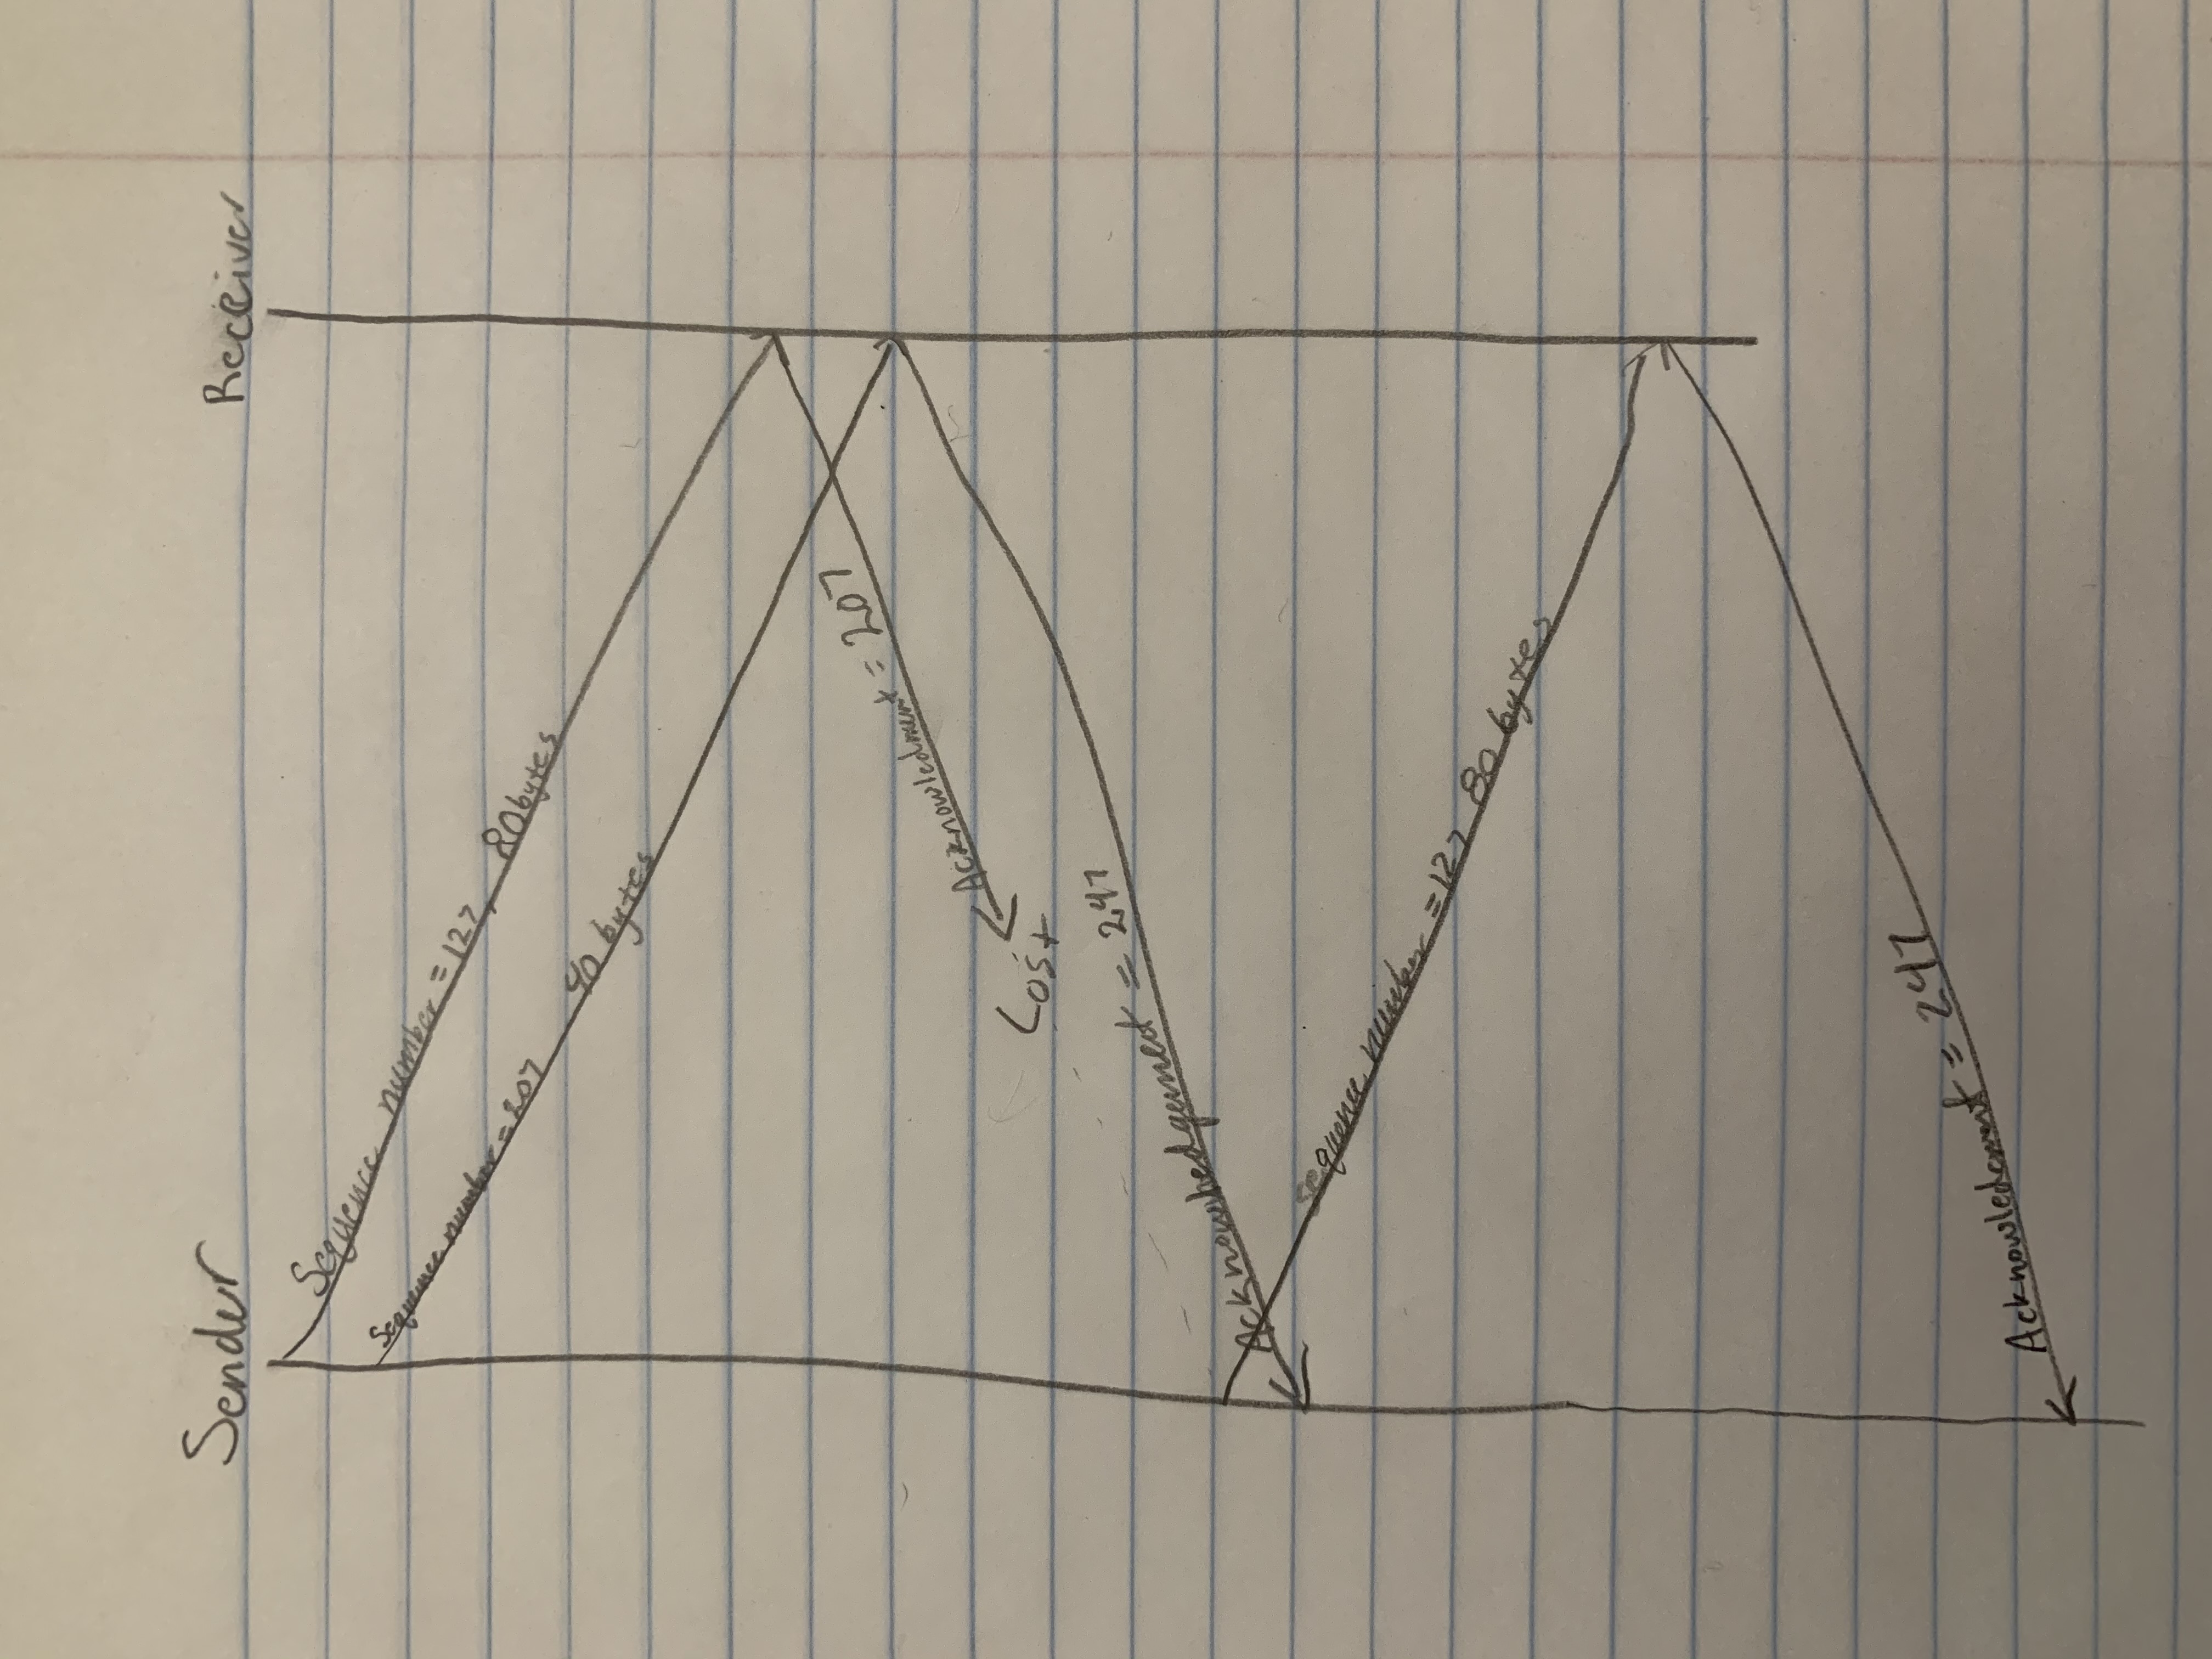 Sender
Receiver
Sequence number = 127, 80bytes
Sequence number = 207 40 bytes
Acknowledment = 207
Lost
Acknowhedgement = 247
sequence number = 127 80 bytes
Acknowledgment = 247